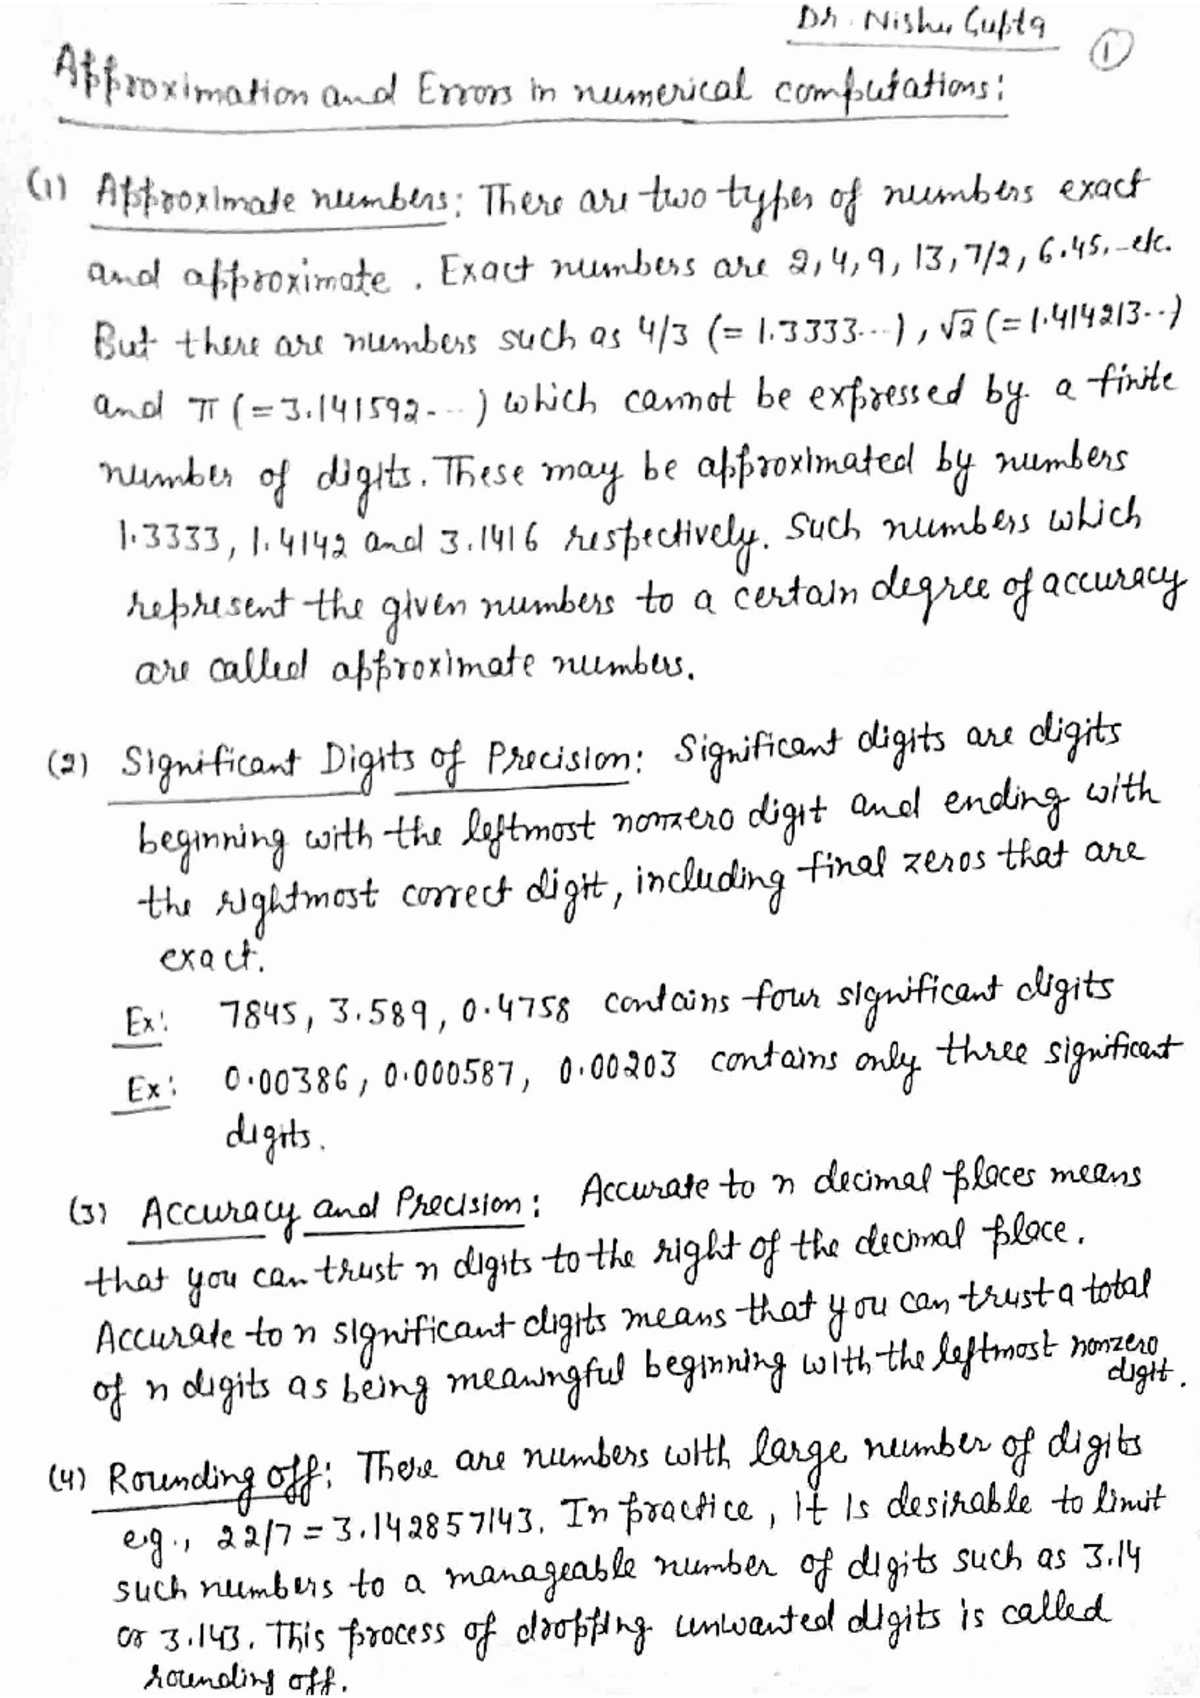 Dr. Nishu Gupta
1
Approximation and Errors in numerical computations:
(1) Approximate numbers: There are two types of numbers exact
and approximate. Exact numbers are 2, 4, 9, 13, 7/2, 6.45, - etc.
But there are numbers such as 4/3 (= 1.3333...), √2 (= 1.414213..)
and π (= 3.141592- ..) which cannot be expressed by a finite
number of digits. These may be approximated by numbers
1.3333, 1.4142 and 3.1416 respectively. Such numbers which
represent the given numbers to a certain degree of accuracy
are called approximate numbers.
(2) Significant Digits of Precision: Significant digits are digits
beginning with the leftmost nonzero digit and ending with
the rightmost correct digit, including final zeros that are
exact.
Ex: 7845, 3.589, 0.4758 contains four significant digits
Ex: 0.00386, 0.000587, 0.00203 contains only three significant
digits.
(3) Accuracy and Precision: Accurate to n decimal places means
that you can trust n digits to the right of the decimal place.
Accurate to n significant digits means that you can trust a total
of n digits as being meaningful beginning with the leftmost nonzero
digit.
(4) Rounding off: There are numbers with large number of digits
e.g., 22/7 = 3.142857143. In practice, it is desirable to limit
such numbers to a manageable number of digits such as 3.14
or 3.143. This process of dropping unwanted digits is called
rounding off.